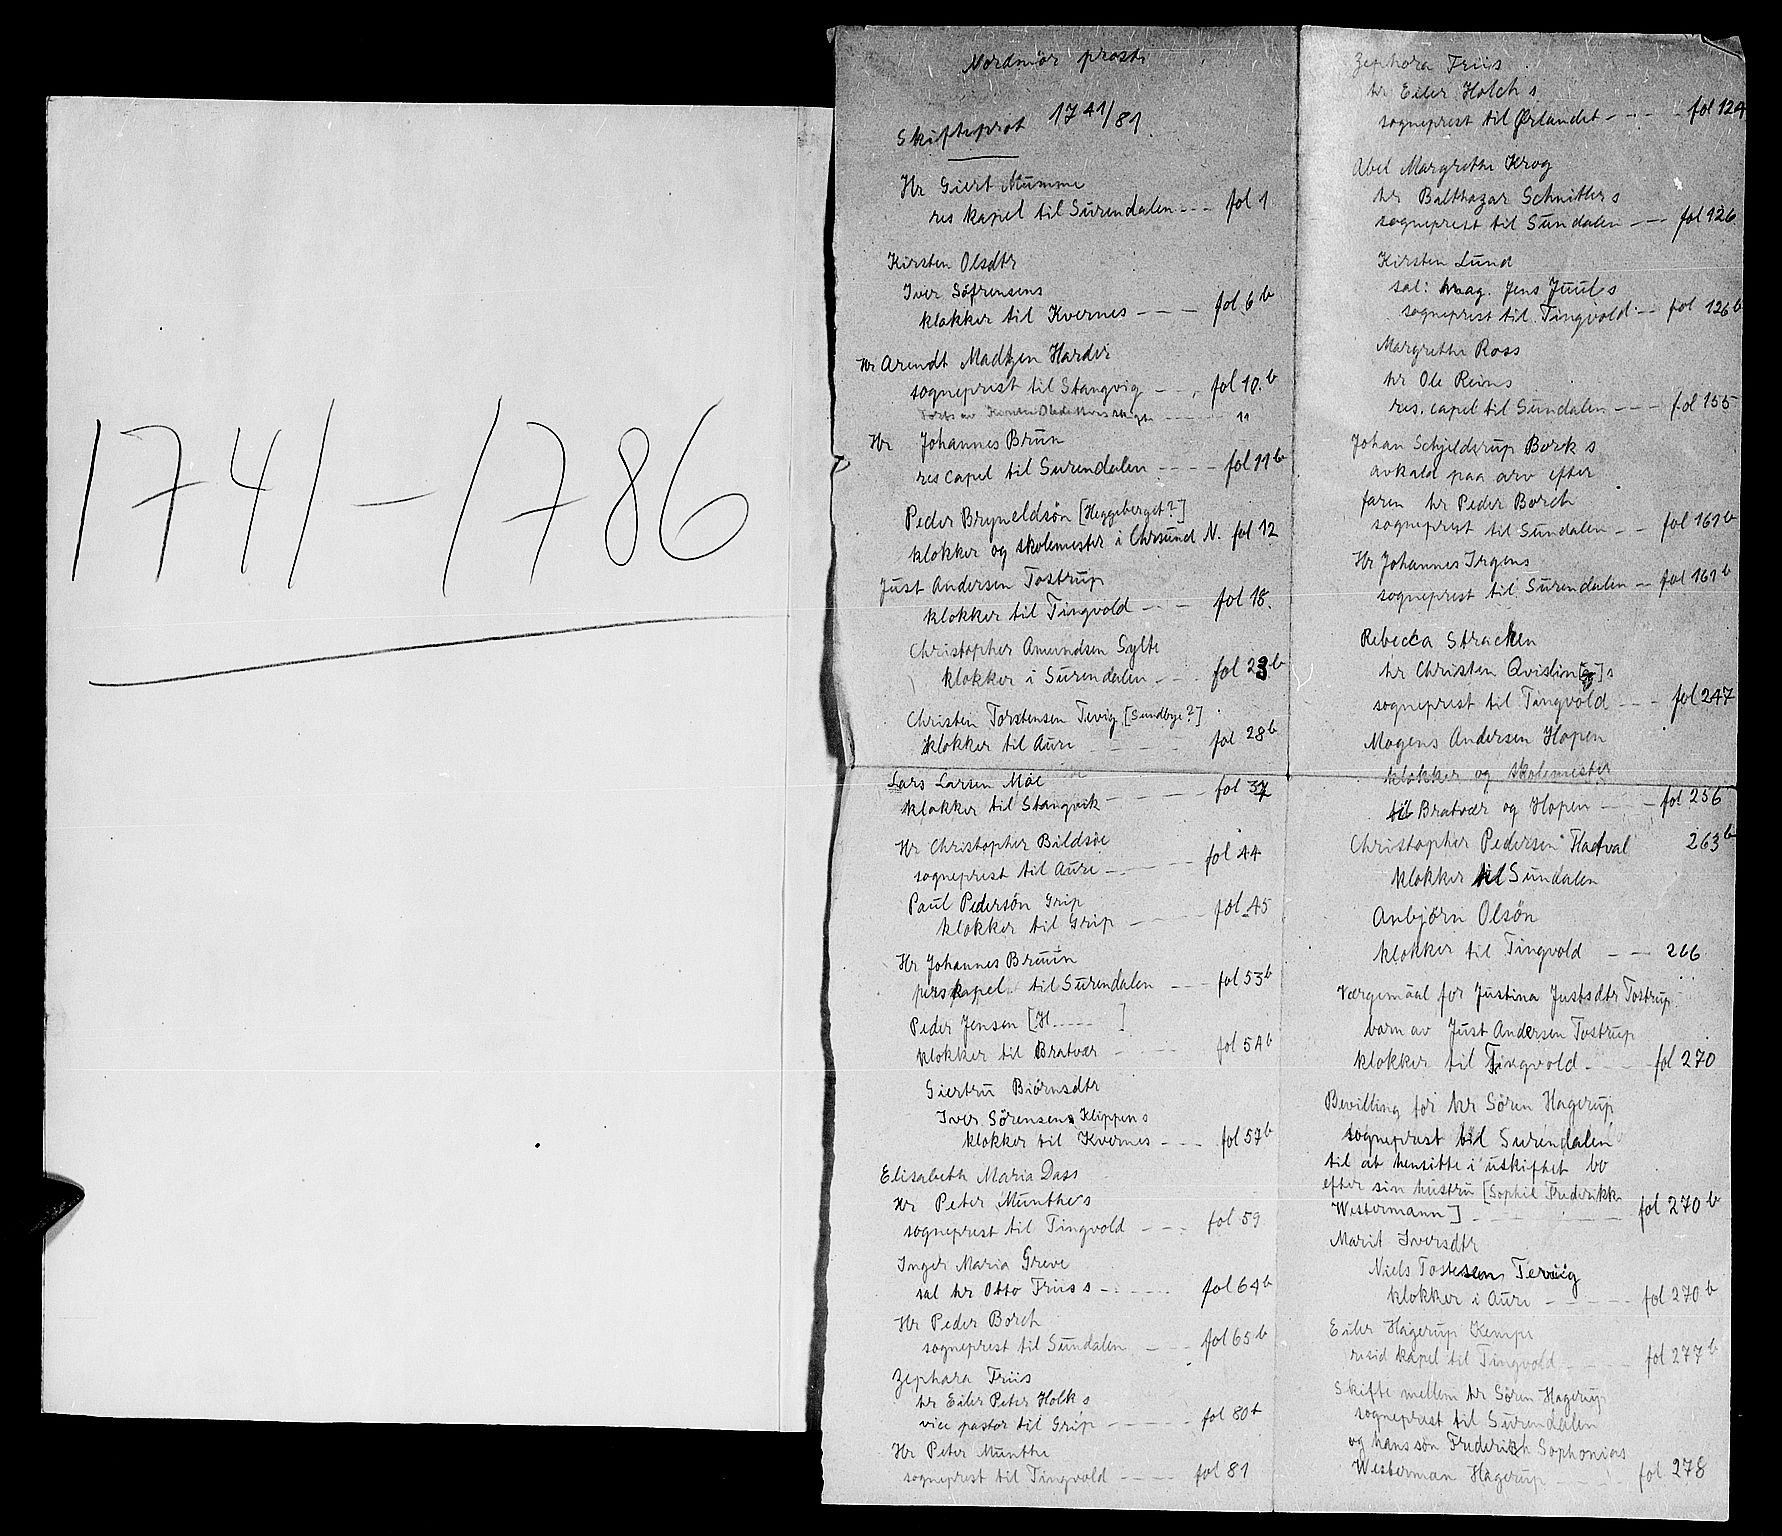 1741-1786
Nordmör prosti
Skifteprot 1741/81.
Hr Giert Mumme
res kapel til Surendalen --- fol 1
Kirsten Olsdtr
Iver Söfrensens
klokker til Kvernes --- fol 6b
Hr Arendt Madtzen Harder
sogneprest til Stangvig --- fol 10.b
11
Hr Johannes Brun
res capel til Surendalen ---- fol 11b
Peder Bryneldsön [Heggeberget?]
klokker og skolemester i Chrsund N. fol 12
Just Andersen Tostrup
klokker til Tingvold --- fol 18.
Christopher Amundsen Sylte
klokker i Surendalen --- fol 23b
Christen Torstensen Tevig [Sundbye?]
klokker til Aure --- fol 28b
Lars Larsen Möe
klokker til Stangvik --- fol 37
Hr Christopher Bildsöe
sogneprest til Aure --- fol 44
Paul Pedersön Grip
klokker til Grip --- fol 45
Hr Johannes Bruun
pers kapel til Surendalen --- fol 53b
Peder Jensen [H..... ]
klokker til Bratvær --- fol 54b
Giertru Biörnsdtr
Iver Sörensens Klippens
klokker til Kvernes --- fol 57b
Elisabeth Maria Dass
Hr Peter Munthes
sogneprest til Tingvold --- fol 59
Inger Maria Greve
sal hr Otto Friis s --- fol 64b
Hr Peder Borch
sogneprest til Sundalen --- fol 65b
Zephora Friis
hr Eiler Peter Holks
vice pastor til Grip --- fol 80b
Hr Peter Munthe
sogneprest til Tingvold --- fol 81
Zephora Friis
hr Eiler Holchs
sogneprest til Ørlandet --- fol 124
Abel Margrethe Krog
hr Balthazar Schnitlers
sogneprest til Sundalen --- fol 126
Kirsten Lund
sal: mag. Jens Juuls
sogneprest til Tingvold -- fol 126b
Margrethe Ross
hr Ole Reins
res. capel til Sundalen --- fol 155
Johan Schjelderup Borks
avkald paa arv efter
faren hr Peder Borch
sogneprest til Sundalen -- fol 161b
Hr Johannes Irgens
sogneprest til Surendalen -- fol 161b
Rebecca Strachen
hr Christen Qvislin[g]s
sogneprest til Tingvold --- fol 247
Mogens Andersen Hopen
klokker og skolemester
til Bratvær og Hopen --- fol 256
Christopher Pedersen Flatval 263b
klokker til Sundalen
Anbjörn Olsön
klokker til Tingvold --- 266
Værgemaal for Justina Justsdtr Tostrup
barn av Just Andersen Tostrup
klokker til Tingvold --- fol 270
Bevilling for hr Sören Hagerup
sogneprest til Surendalen
til at hensitte i uskiftet bo
efter sin hustru [Sophie Frederikke
Westermann] --- fol 270b
Marit Iversdtr
Niels Tostensens Tevig
klokker i Aure --- fol 270b
Eiler Hagerup Kempe
resid kapel til Tingvold --- fol 277b
Skifte mellem hr Sören Hagerup
sogneprest til Surendalen
og hans sön Frederich Sophonias
Westerman Hagerup --- fol 278